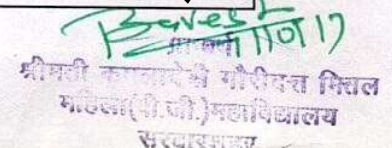 प्राचार्या
श्रीमती कमलादेवी गौरीदत्त मित्तल
महिला(पी.जी.)महाविद्यालय
सरदारशहर